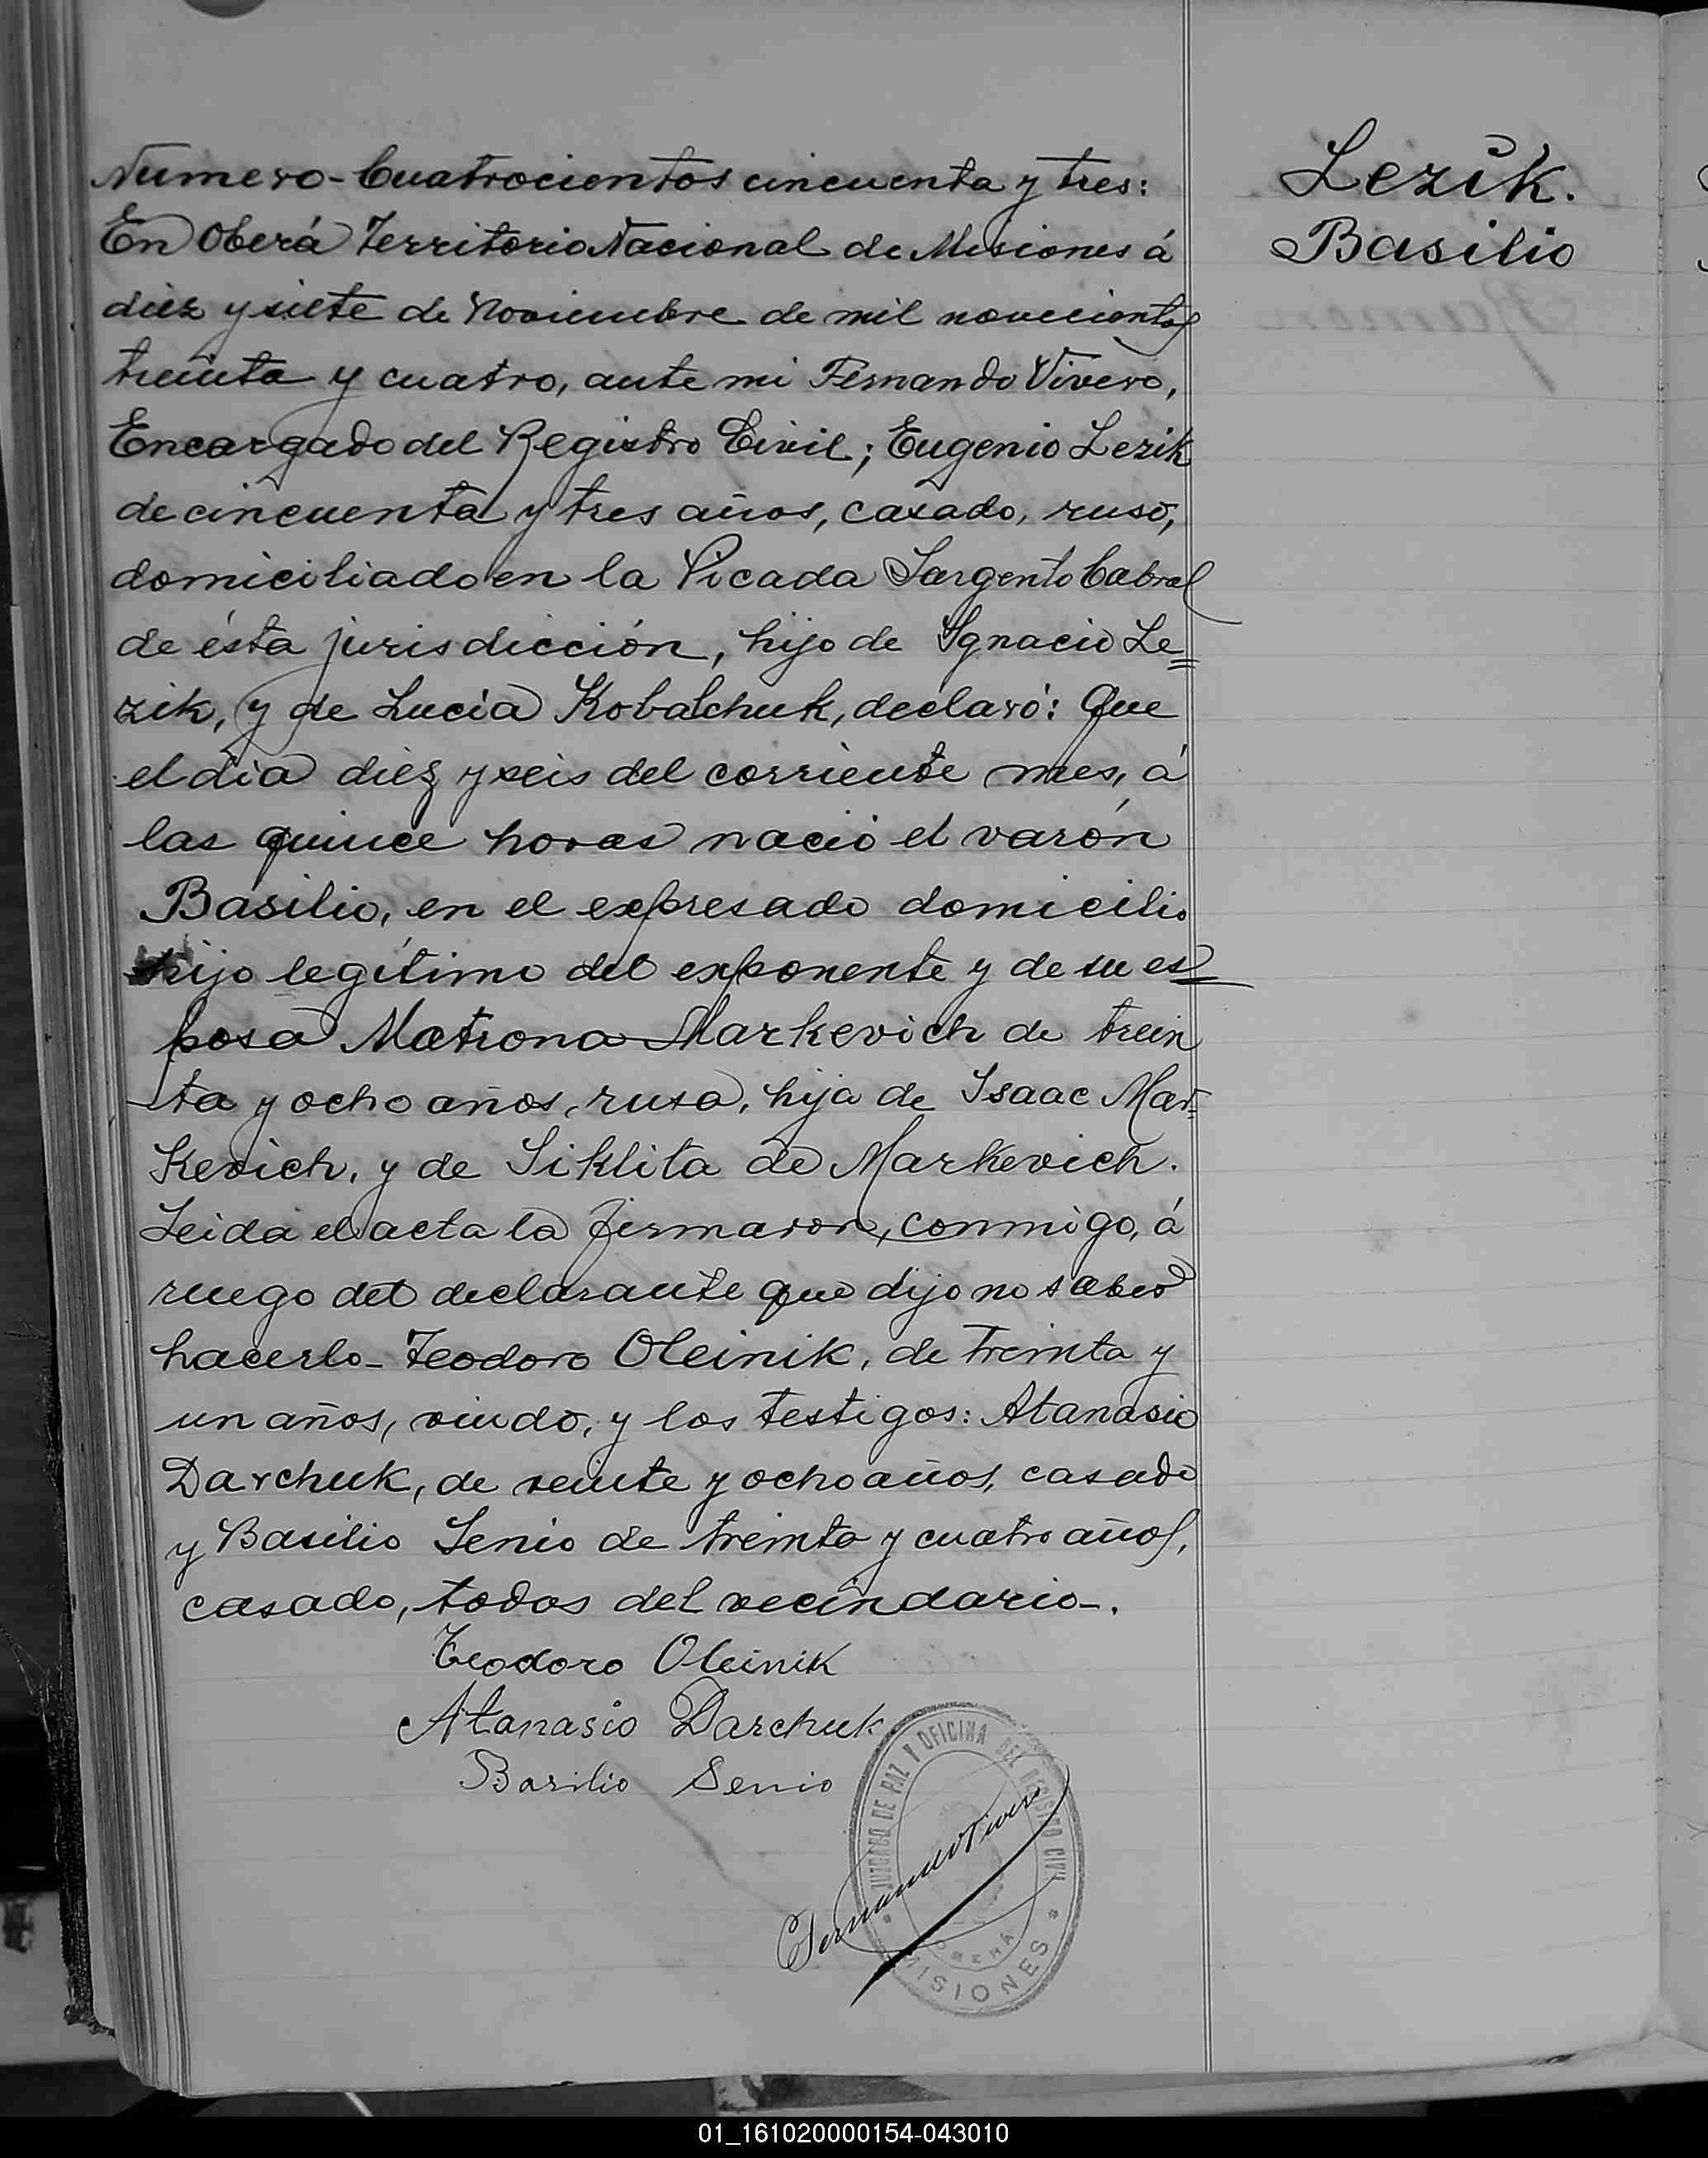 Numero-Cuatrocientos cincuenta y tres:
En Oberá Territorio Nacional de Misiones á
diez y siete de Noviembre de mil novecientos
treinta y cuatro, ante mi Fernando Vivero,
Encargado del Registro Civil; Eugenio Lezik
de cincuenta y tres años, casado, ruso,
domiciliado en la Picada Sargento Cabral
de ésta jurisdicción, hijo de Ignacio Le=
zik, y de Lucia Kobalchuk, declaró: Que
el dia diez y seis del corriente mes, á
las quince horas nació el varón
Basilio, en el expresado domicilio
hijo legítimo del exponente y de su es=
posa Matrona Markevich de trein
ta y ocho años, rusa, hija de Isaac Mar=
Kevich, y de Siklita de Markevich.
Leida el acta la firmaron, conmigo, á
ruego del declarante que dijo no saber
hacerlo- Teodoro Oleinik, de treinta y
un años, viudo, y los testigos: Atanasio
Darchuk, de veinte y ocho años, casado
y Basilio Senio de treinta y cuatro años,
casado, todos del vecindario-.
Teodoro Oleinik
Atanasio Darchuk
Basilio Senio
Fernando Vivero
JUZGADO DE PAZ Y OFICINA DEL REGISTRO CIVIL
OBERÁ
MISIONES
Lezik.
Basilio
01_161020000154-043010